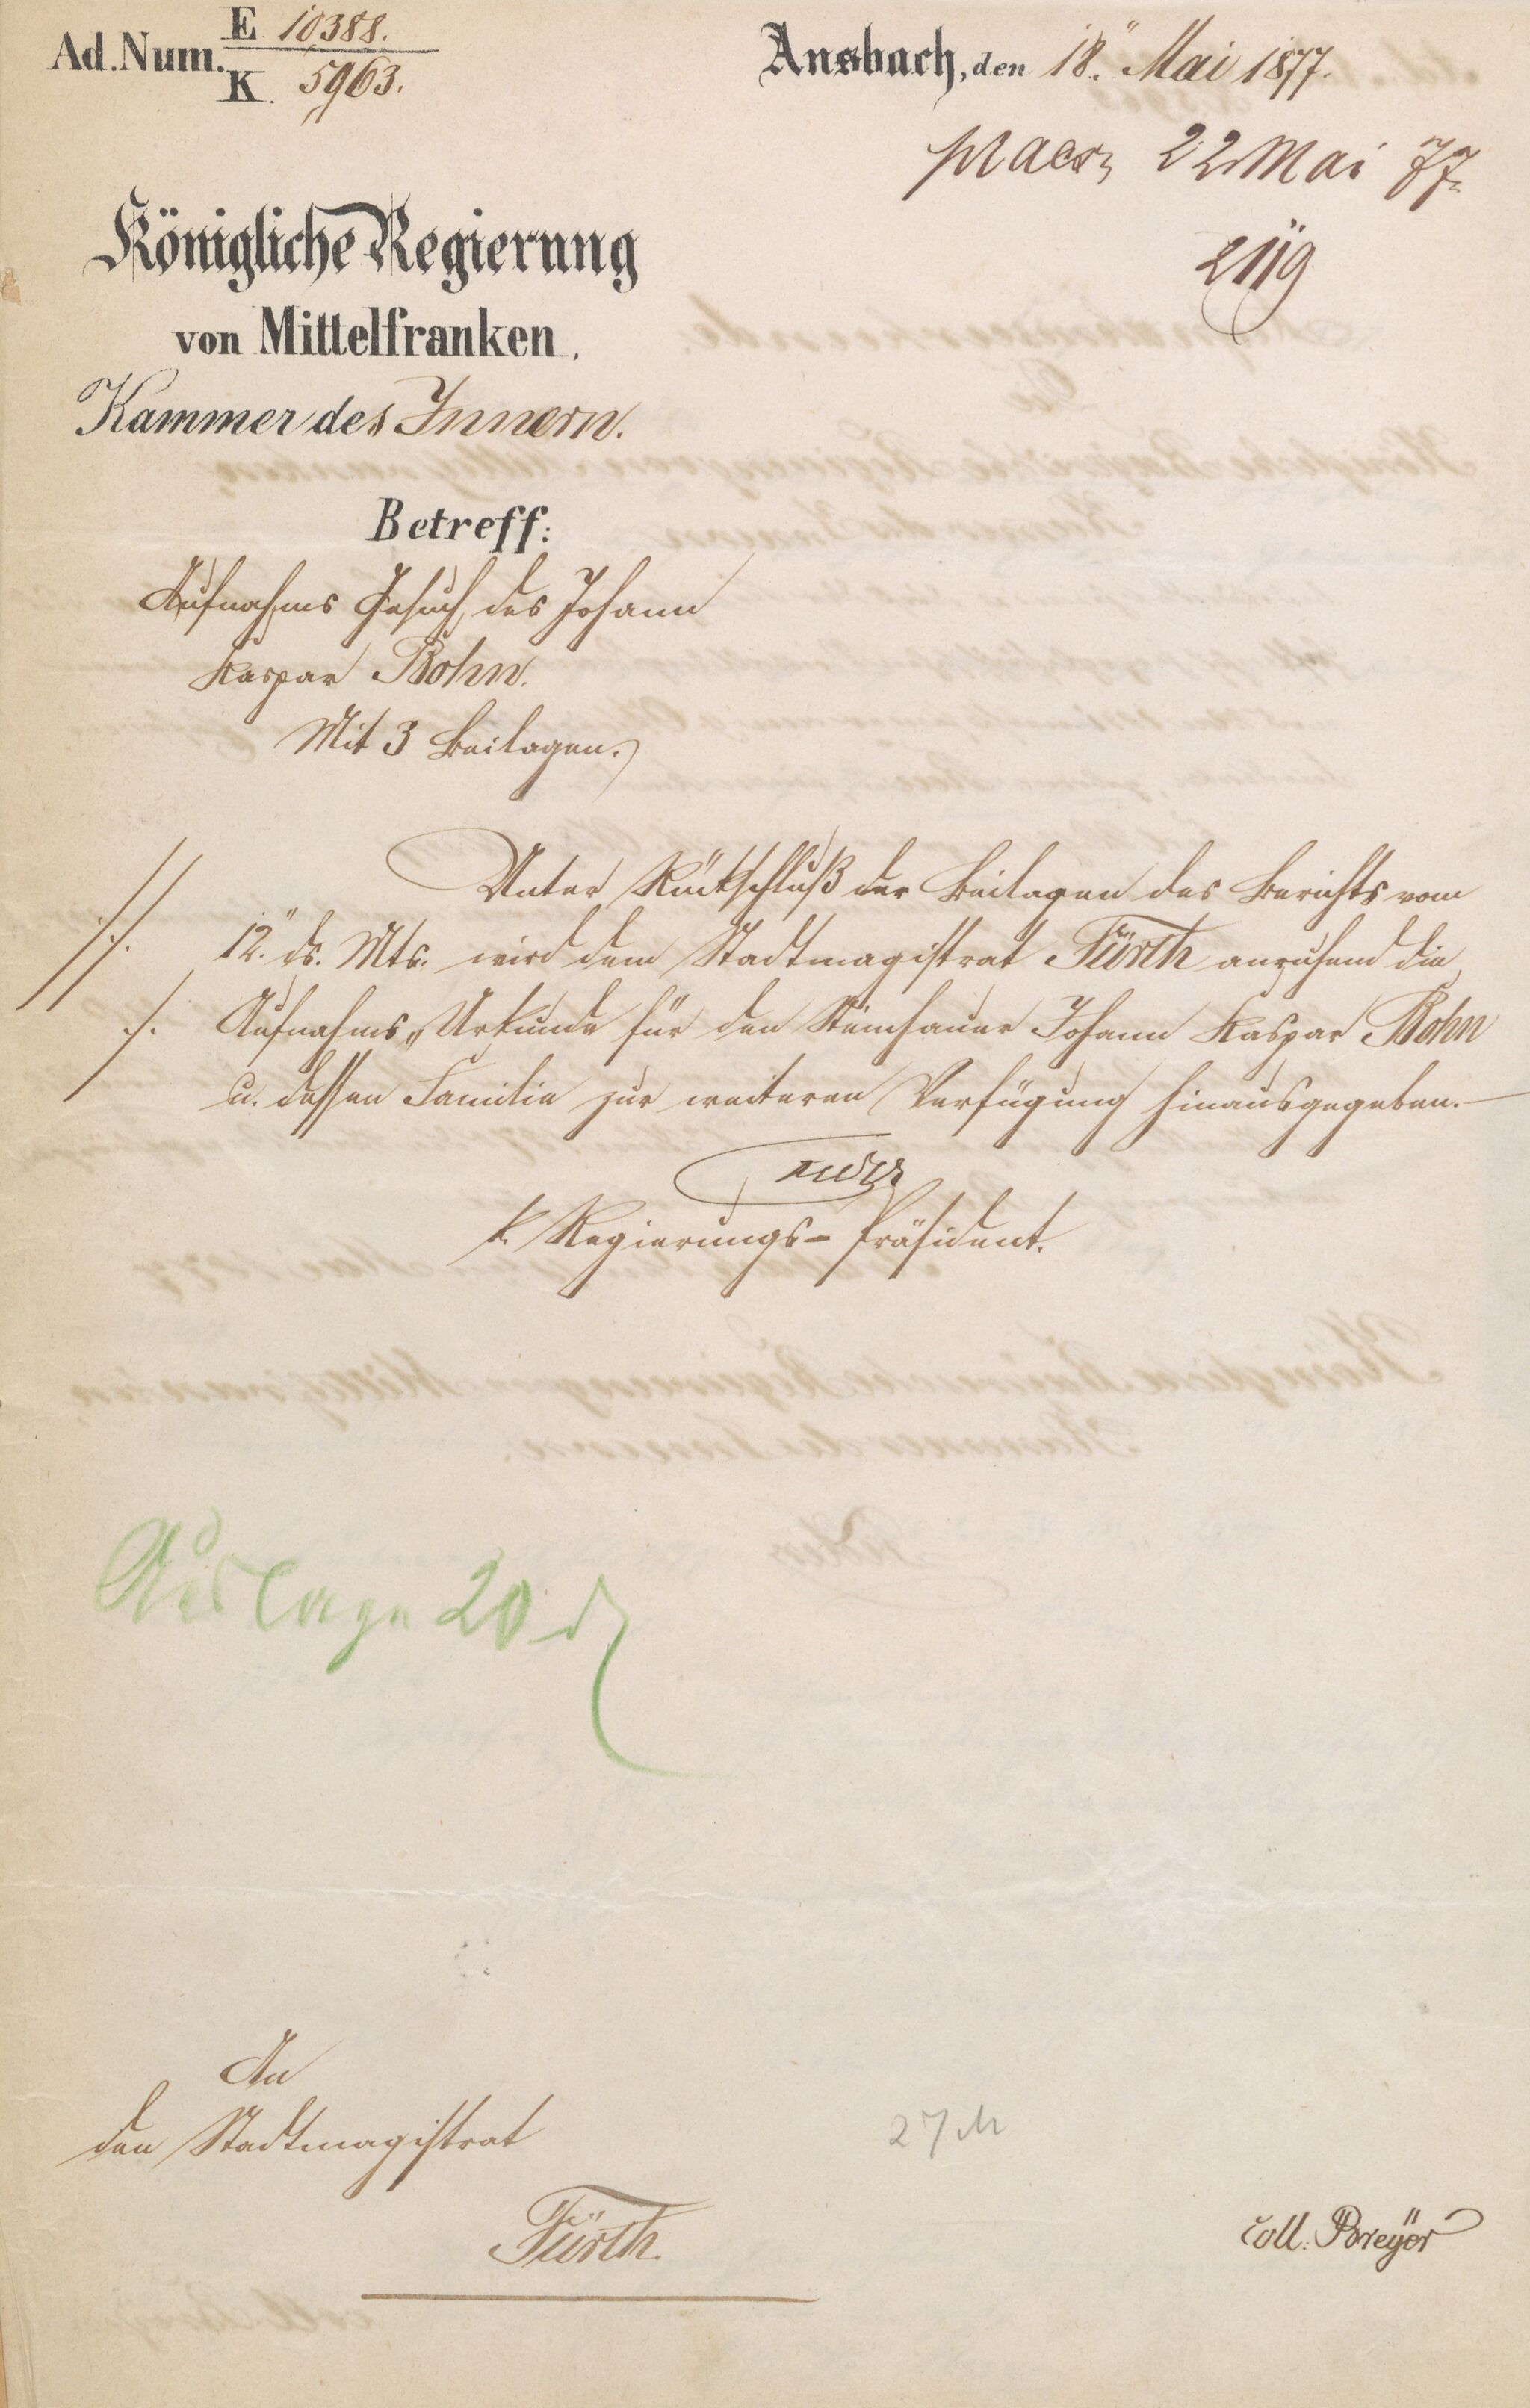 Ad. Num. E 10388.
K. 5963.
Ansbach, den 18." Mai 1877.
praes. 22 Mai 77.
2119
Königliche Regierung
von Mittelfranken,
Kammer des Innern.
Betreff:
Aufnahms Gesuch des Johann
Kaspar Bohn.
Mit 3 Beilagen.
Unter Rückschluß der Beilagen des Berichts vom
12." ds. Mts. wird dem Stadtmagistrat Fürth anruhend die
Aufnahms-Urkunde für den Steinhauer Johann Kaspar Bohn
u. dessen Familie zur weiteren Verfügung hinausgegeben.
k. Regierungs-Präsident.
Auslage 20 d
An
den Stadtmagistrat
Fürth.
27 M
Coll. Breÿer